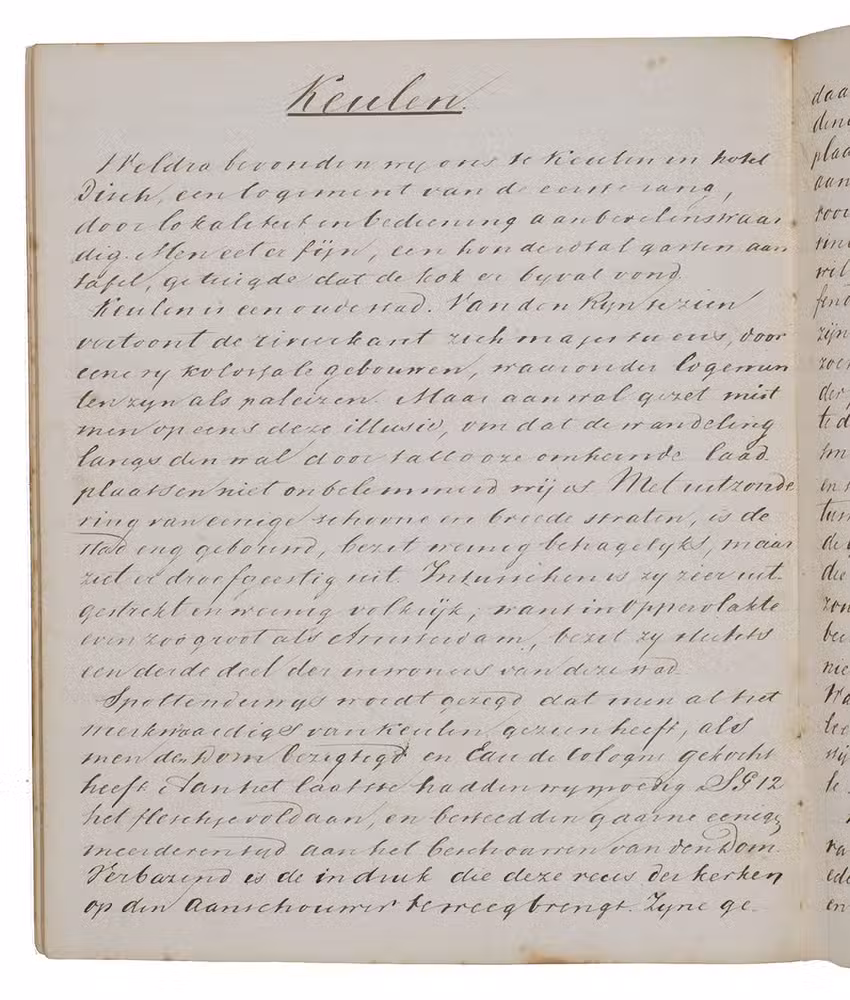 Keulen.
Weldra bevonden wij ons te Keulen in hotel
Disch, een logement van de eerste rang,
door lokaliteit en bediening aanbevelenswaar
dig. Men eet er fijn, een honderdtal gasten aan
tafel, getuigde dat de kok er byval vond.
Keulen is een oude stad. Van den Ryn te zien
vertoont de rivierkant zich majestueus, door
eene ry kolossale gebouwen, waaronder logemen
ten zyn als paleizen. Maar aan wal gezet mist
men opeens deze illusie, omdat de wandeling
langs den wal door tallooze omheinde laad
plaatsen niet onbelemmerd wijst Met uitzonde
ring van eenige schoone en breede straten, is de
stad eng gebouwd, bezit weinig behagelyks, maar
ziet er droefgeestig uit. Intusschen is zy zeer uit
gestrekt en weinig volkrijk, want in oppervlakte
even zoo groot als Amsterdam, bezit zy slechts
een derde deel der inwoners van deze stad.
Spottenderwys wordt gezegd dat men al het
merkwaardigs van Keulen gezien heeft, als
men den Dom bezigtigd en Eau de Cologne gekocht
heeft Aan het laatste hadden wy 12
het fleschje voldaan, en besteedden gaarne eenige
meerderen tyd aan het beschouwen van den Dom.
Verbazend is de indruk die deze reus der kerken
op den aanschouwer te weeg brengt. Zyne ge
daa
den
plaa
aan
voor
wil
zijn
der
te d
en
de
die
zon
nie
le
va
en